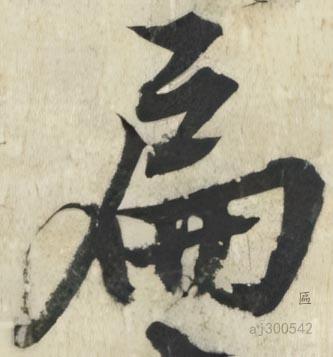 扁
aj300542